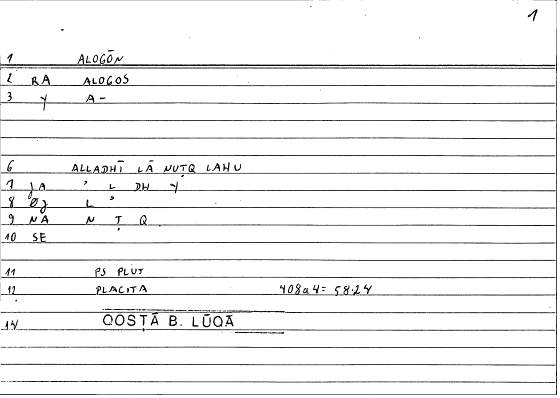 1
1 ALOGŌN
2 RA ALOGOS
3 Y A-
6 ALLADHĪ LĀ NUṬQ LAHU
7 JA ' L DH Y
8 ØJ L '
9 NA N Ṭ Q
10 SE
11 PS PLUT
12 PLACITA 408a4 = 58.24
14 QOSṬĀ B. LŪQĀ